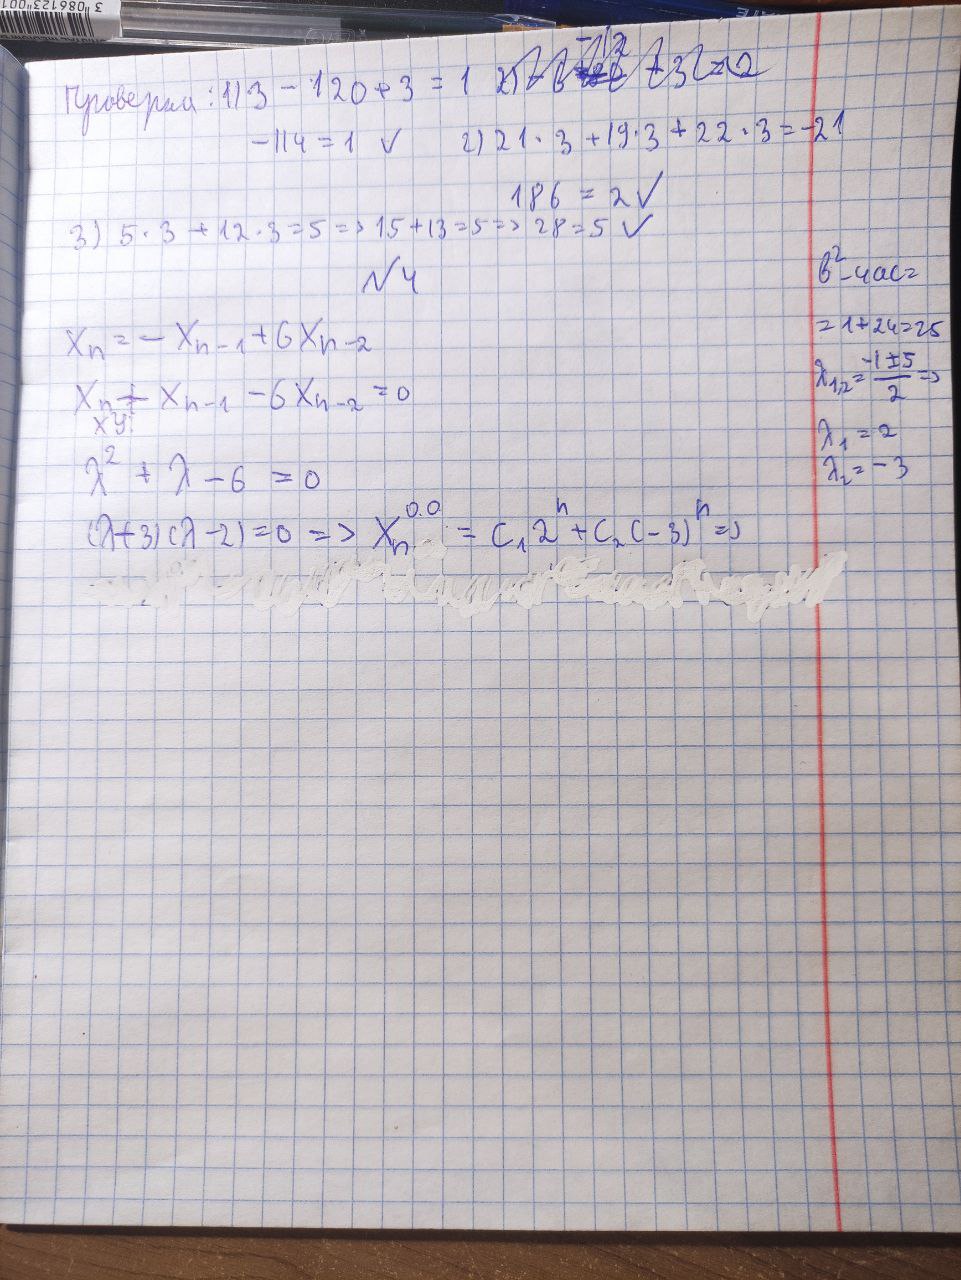 3"086123"001
Проверка: 1) 3 - 120 + 3 = 1
-114 = 1 ✓ 2) 21·3 + 19·3 + 22·3 = -21
186 = 2 ✓
3) 5·3 + 12·3 = 5 => 15 + 13 = 5 => 28 = 5 ✓
№4
Xₙ = - Xₙ₋₁ + 6Xₙ₋₂
Xₙ + Xₙ₋₁ - 6Xₙ₋₂ = 0
ХУ:
λ² + λ - 6 = 0
(λ+3)(λ-2) = 0 => Xₙ⁰·⁰ = C₁2ⁿ + C₂(-3)ⁿ =>
b² - 4ac =
= 1 + 24 = 25
λ₁,₂ = (-1 ± 5)/2 =>
λ₁ = 2
λ₂ = -3